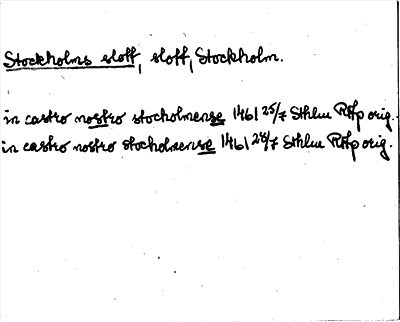 Stockholms slott, slott, Stockholm.
in castro nostro stocholmense 1461 25/7 Sthlm RAp orig.
in castro nostro stocholmense 1461 28/7 Sthlm RAp orig.